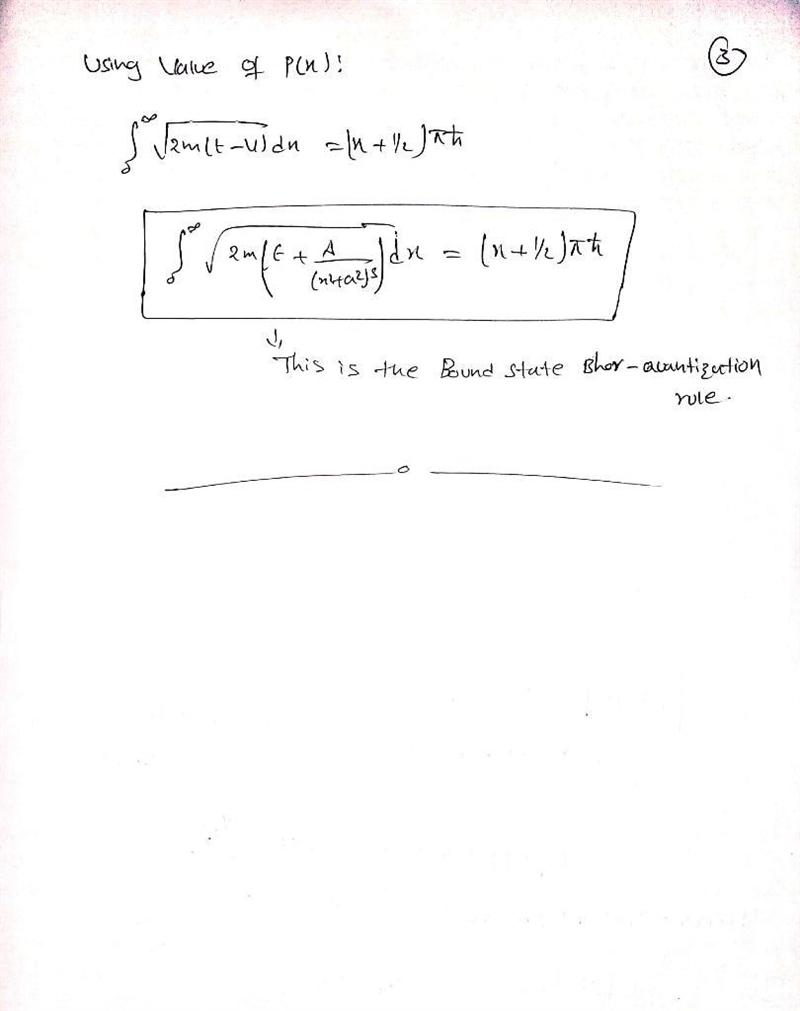 Using Value of P(x):
③
∫₀^∞ √(2m(E-U)) dx = (n + 1/2)πħ
∫₀^∞ √(2m(E + A/(x²+a²)³)) dx = (n + 1/2)πħ
↓
This is the Bound state Bhor-quantization
rule.